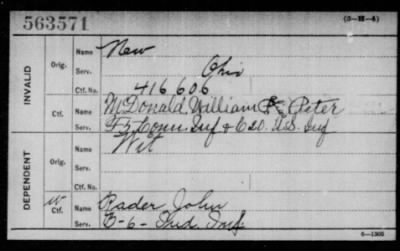 563571 (3-H-4)
INVALID
Orig. Name New
Serv. Ohio
Ctf. No. 416606
Ctf. Name McDonald, William Peter
Serv. F 3 Conn Inf & C 20. U.S. Inf
DEPENDENT
Orig. Name Wit
Serv.
Ctf. No.
W Ctf. Name Rader John
Serv. B-6- Ind. Inf